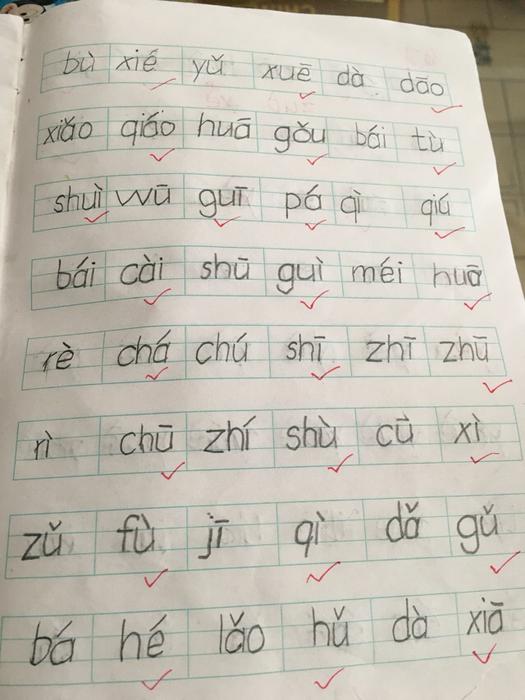 bù xié yǔ xuē dà dāo
xiǎo qiáo huā gǒu bái tù
shuǐ wū guī pá qì qiú
bái cài shū guì méi huā
rè chá chú shī zhī zhū
rì chū zhí shù cū xì
zǔ fù jī qì dǎ gǔ
bá hé lǎo hǔ dà xiā